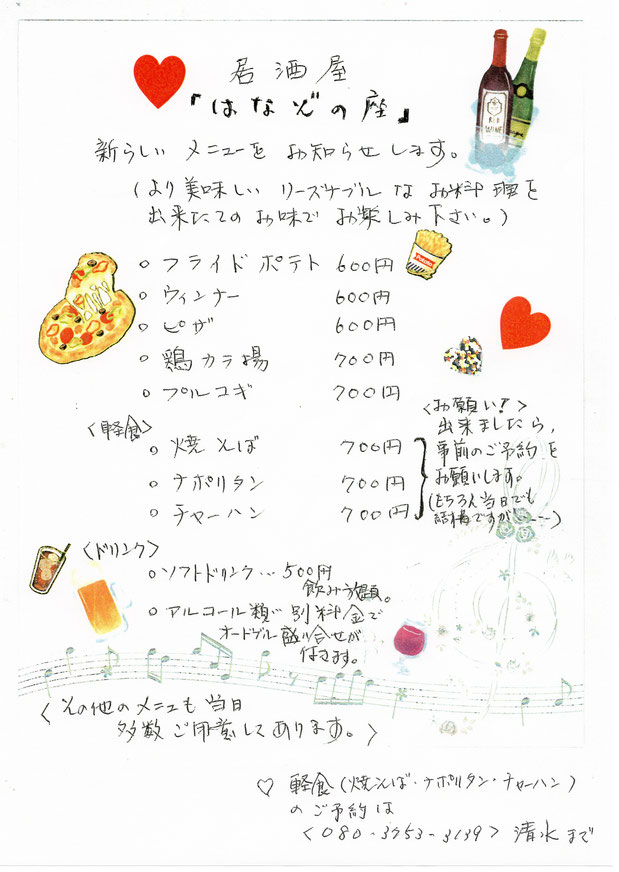 居酒屋
「はなぞの座」
新らしい メニューを お知らせします。
(より美味しい リーズナブル な お料理を
出来たてのお味で お楽しみ下さい。)
○ フライドポテト 600円
○ ウィンナー 600円
○ ピザ 600円
○ 鶏カラ揚 700円
○ プルコギ 700円
<軽食>
○ 焼そば 700円
○ ナポリタン 700円
○ チャーハン 700円
<お願い!>
出来ましたら、
事前のご予約を
お願いします。
(もちろん当日でも
結構ですが----)
<ドリンク>
○ ソフトドリンク… 500円
飲み放題。
○ アルコール類は 別料金で
オードブル盛り合せが
付きます。
<その他のメニューも 当日
多数 ご用意してあります。>
♡ 軽食(焼そば・ナポリタン・チャーハン)
のご予約は
<080-3753-3139> 清水まで
RED
WINE